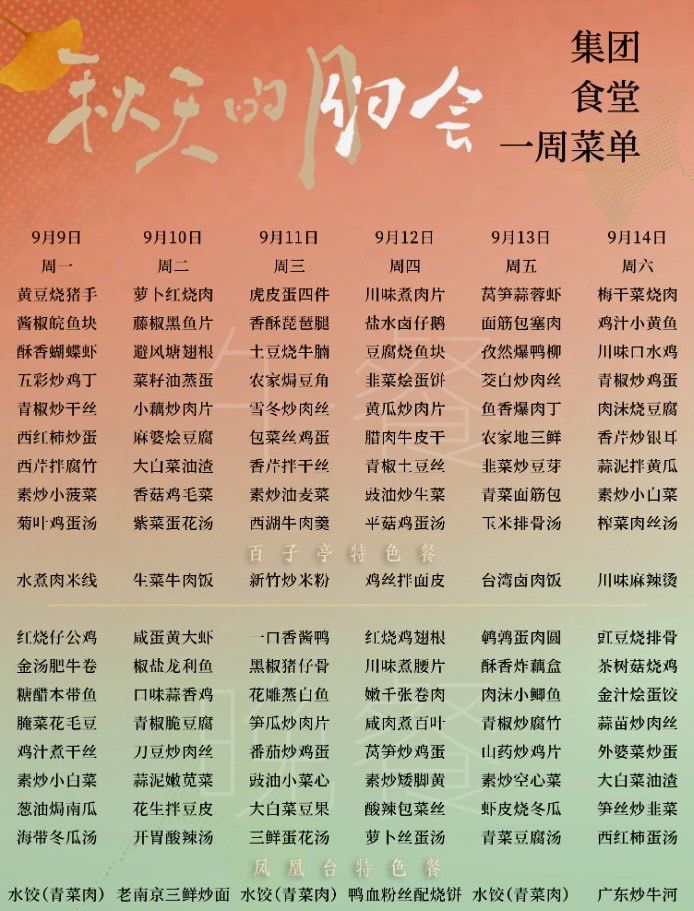 秋天的约会
集团
食堂
一周菜单
9月9日 9月10日 9月11日 9月12日 9月13日 9月14日
周一 周二 周三 周四 周五 周六
黄豆烧猪手 萝卜红烧肉 虎皮蛋四件 川味煮肉片 莴笋蒜蓉虾 梅干菜烧肉
酱椒皖鱼块 藤椒黑鱼片 香酥琵琶腿 盐水卤仔鹅 面筋包塞肉 鸡汁小黄鱼
酥香蝴蝶虾 避风塘翅根 土豆烧牛腩 豆腐烧鱼块 孜然爆鸭柳 川味口水鸡
五彩炒鸡丁 菜籽油蒸蛋 农家焗豆角 韭菜烩蛋饺 茭白炒肉丝 青椒炒鸡蛋
青椒炒干丝 小藕炒肉片 雪冬炒肉丝 黄瓜炒肉片 鱼香爆肉丁 肉沫烧豆腐
西红柿炒蛋 麻婆烩豆腐 包菜丝鸡蛋 腊肉牛皮干 农家地三鲜 香芹炒银耳
西芹拌腐竹 大白菜油渣 香芹拌干丝 青椒土豆丝 韭菜炒豆芽 蒜泥拌黄瓜
素炒小菠菜 香菇鸡毛菜 素炒油麦菜 豉油炒生菜 青菜面筋包 素炒小白菜
菊叶鸡蛋汤 紫菜蛋花汤 西湖牛肉羹 平菇鸡蛋汤 玉米排骨汤 榨菜肉丝汤
午餐
百子亭特色餐
水煮肉米线 生菜牛肉饭 新竹炒米粉 鸡丝拌面皮 台湾卤肉饭 川味麻辣烫
红烧仔公鸡 咸蛋黄大虾 一口香酱鸭 红烧鸡翅根 鹌鹑蛋肉圆 豇豆烧排骨
金汤肥牛卷 椒盐龙利鱼 黑椒猪仔骨 川味煮腰片 酥香炸藕盒 茶树菇烧鸡
糖醋本带鱼 口味蒜香鸡 花雕蒸白鱼 嫩千张卷肉 肉沫小鲫鱼 金汁烩蛋饺
腌菜花毛豆 青椒脆豆腐 笋瓜炒肉片 咸肉煮百叶 青椒炒腐竹 蒜苗炒肉丝
鸡汁煮干丝 刀豆炒肉丝 番茄炒鸡蛋 莴笋炒鸡蛋 山药炒鸡片 外婆菜炒蛋
素炒小白菜 蒜泥嫩苋菜 豉油小菜心 素炒矮脚黄 素炒空心菜 大白菜油渣
葱油焗南瓜 花生拌豆皮 大白菜豆果 酸辣包菜丝 虾皮烧冬瓜 笋丝炒韭菜
海带冬瓜汤 开胃酸辣汤 三鲜蛋花汤 萝卜丝蛋汤 青菜豆腐汤 西红柿蛋汤
晚餐
凤凰台特色餐
水饺(青菜肉) 老南京三鲜炒面 水饺(青菜肉) 鸭血粉丝配烧饼 水饺(青菜肉) 广东炒牛河